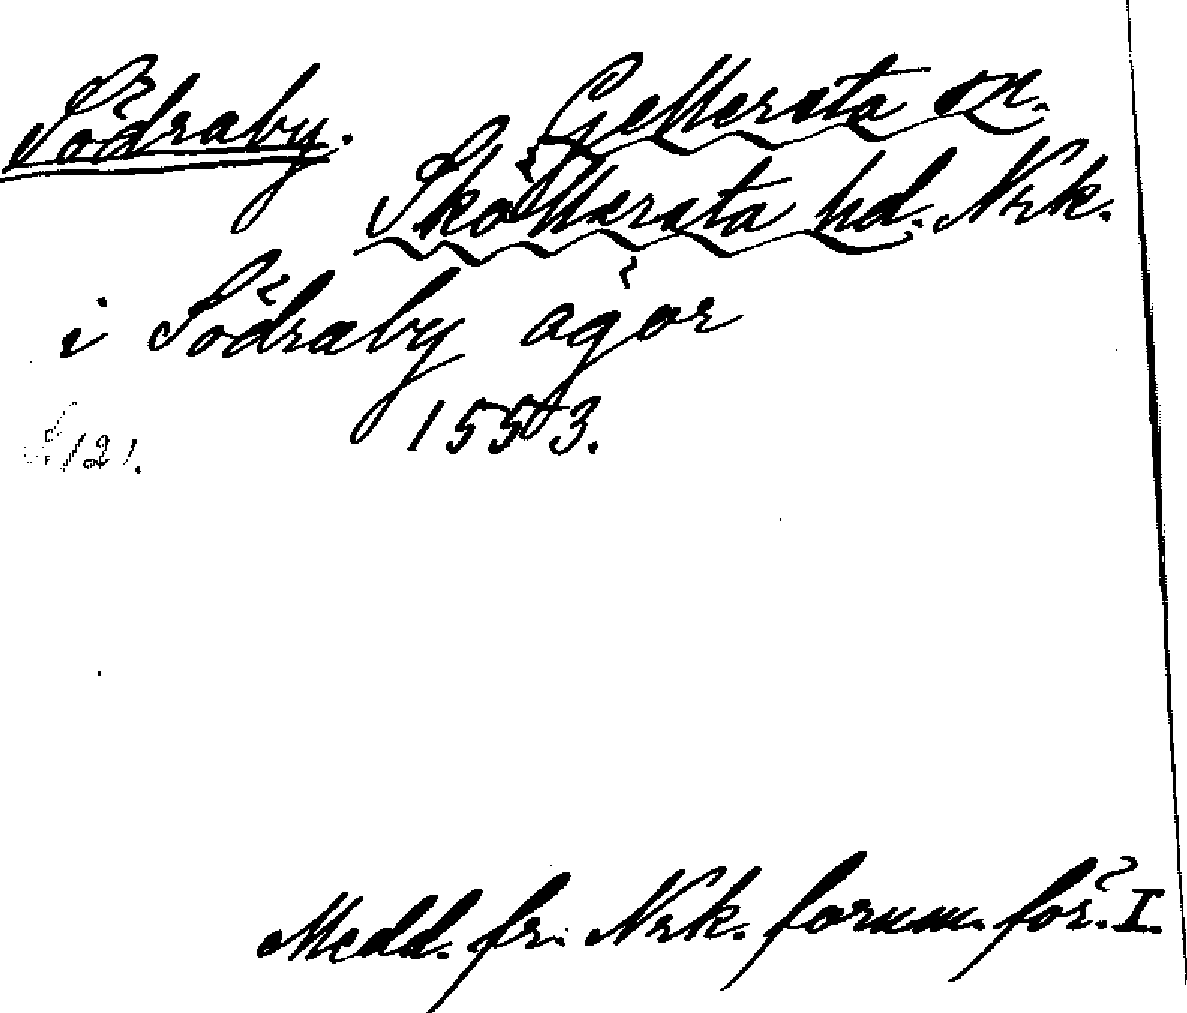 Södraby. Gellersta sn.
Sköllersta hd. Nrk.
i Södraby ägor
1553.
S. 121.
Medd. fr. Nrk. fornm. för. I.